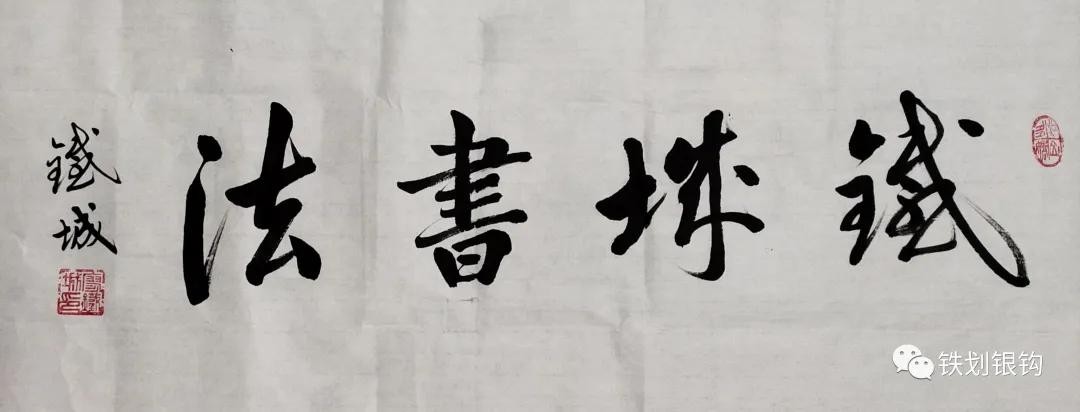 鐵城書法
鐵城
铁划银钩